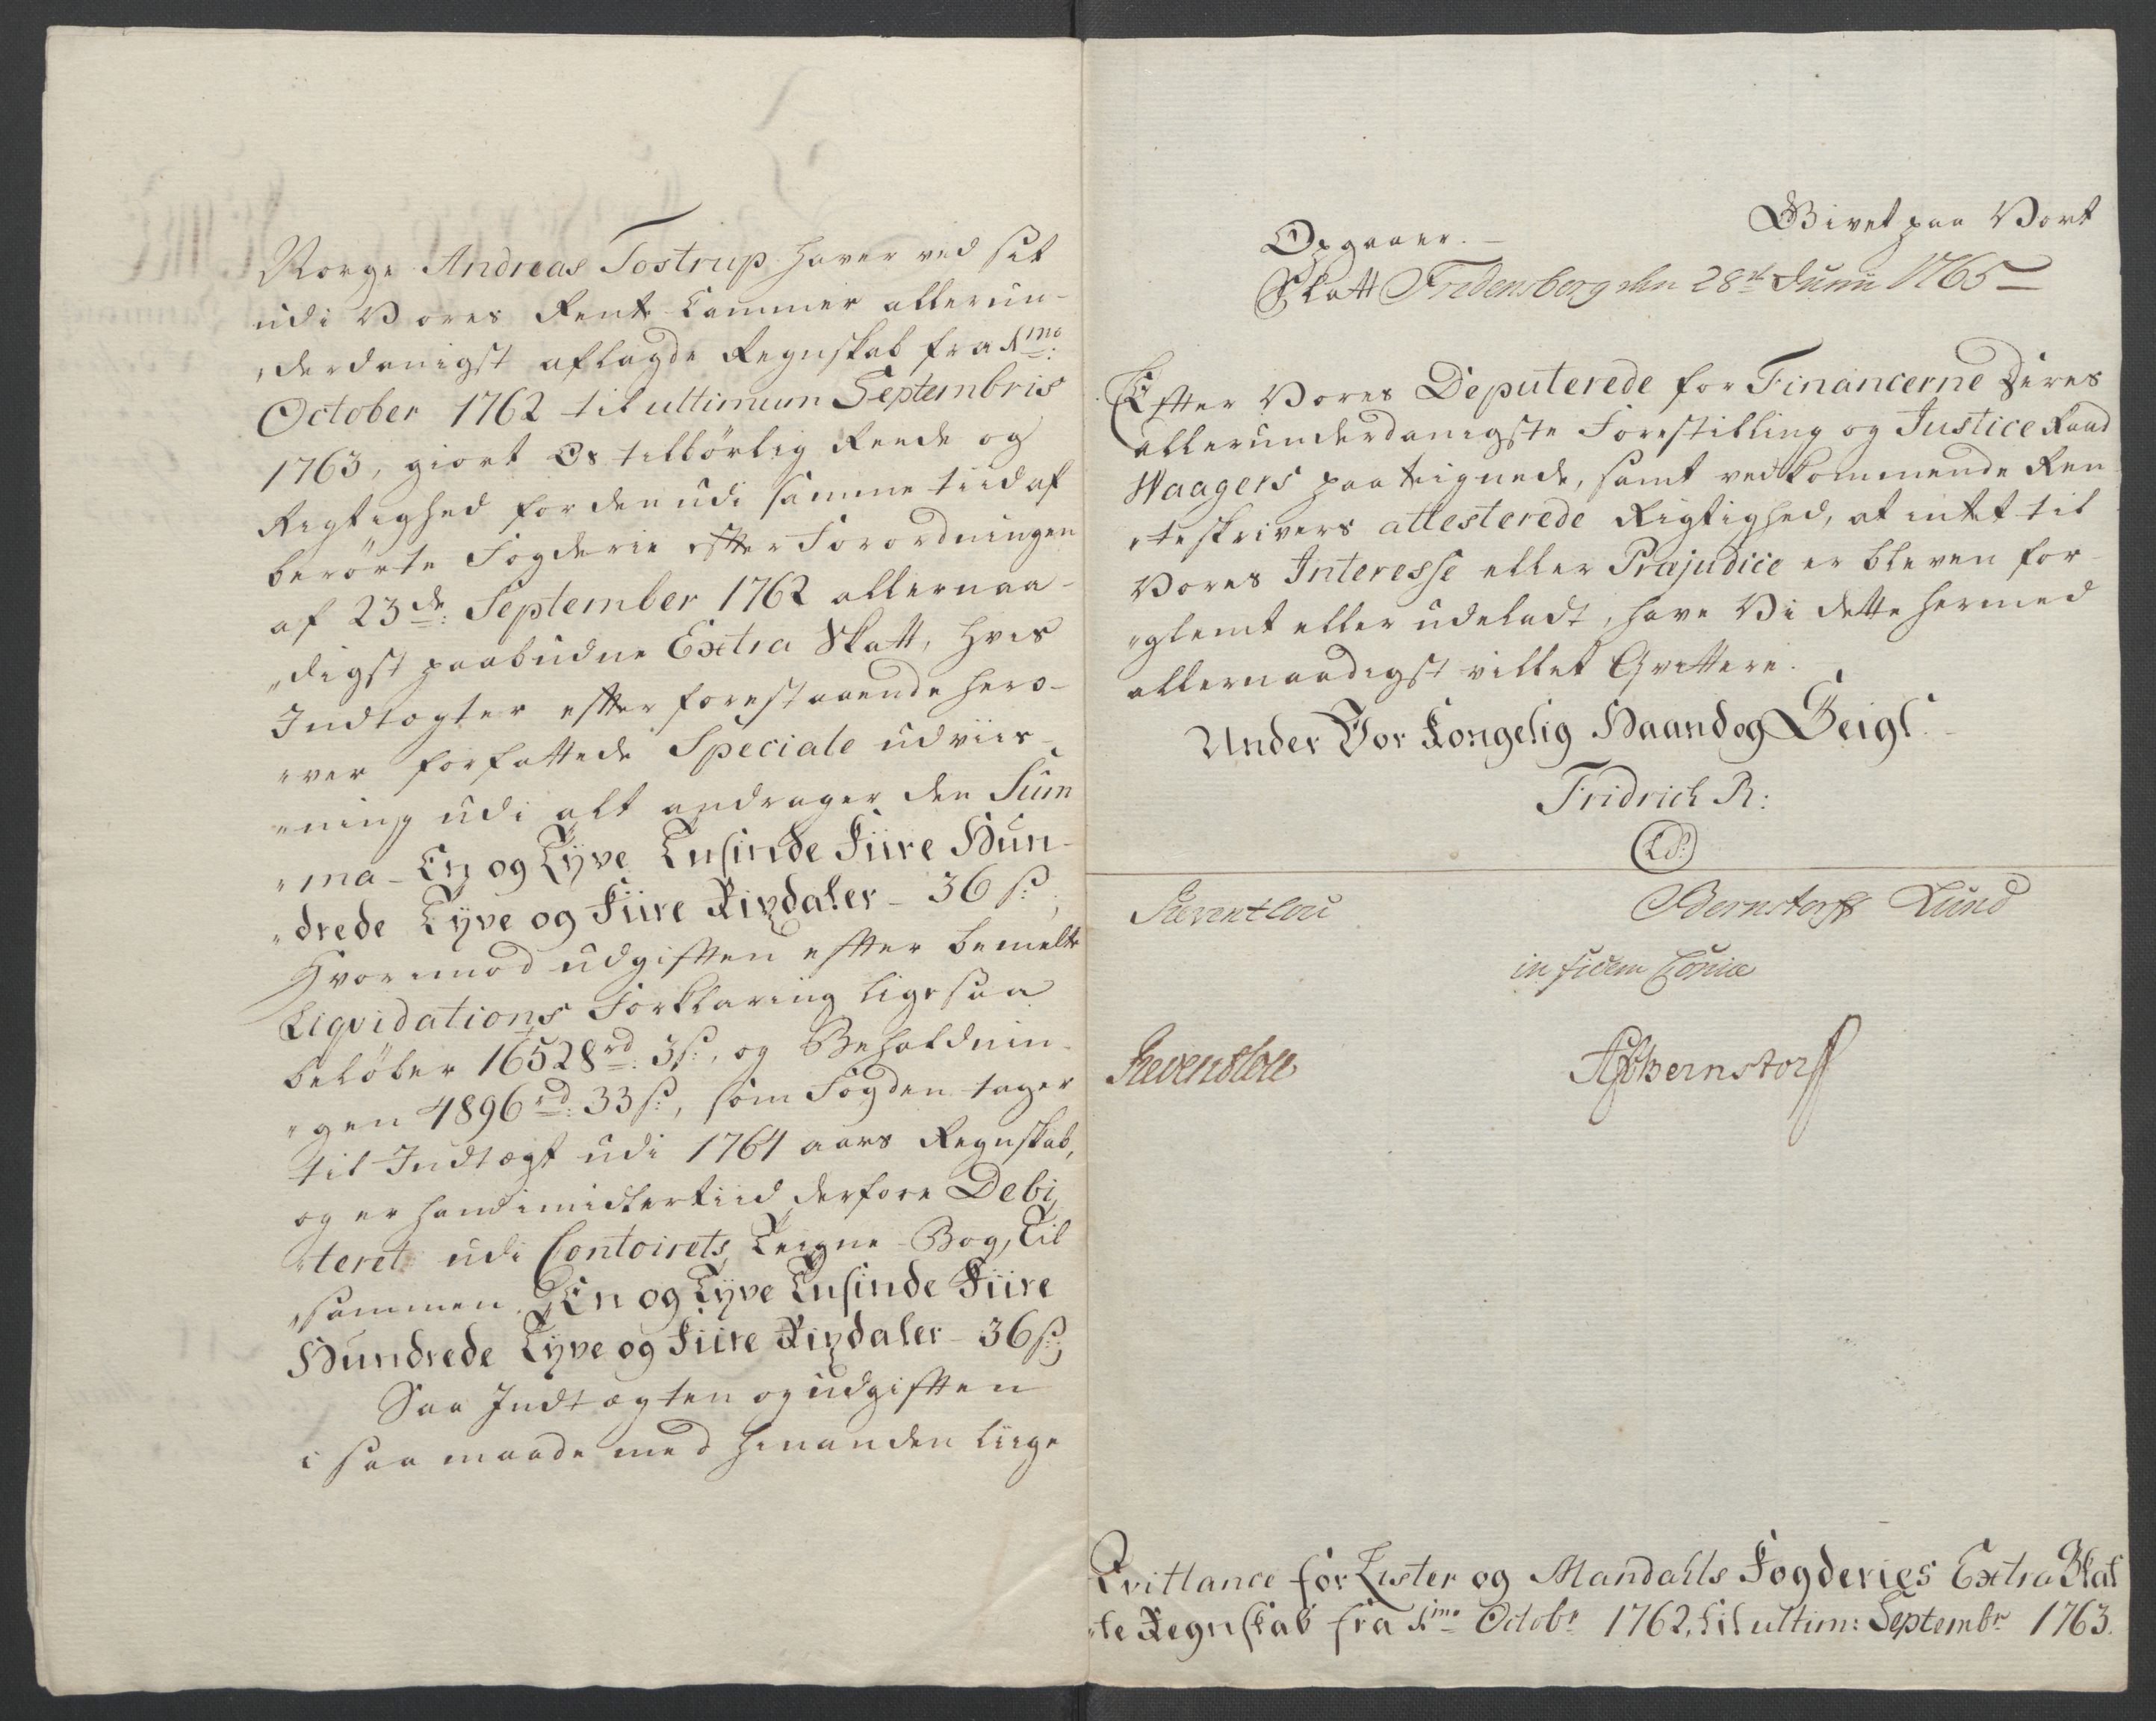 Norge Andreas Tostrup haver ved sit
udi Vores Rente-Cammer allerun-
„derdanigst aflagde Regnskab fra 1mo:
October 1762 til ultimum Septembris
1763, giort Os tilbørlig Reede og
Rigtighed for den udi samme tiid af
berørte Fogderie efter Forordningen
af 23de: September 1762 allernaa-
„digst paabudne Extra Skatt, hvis
Indtægter efter forestaaende her o-
„ver forfattede Speciale udviis-
„ning udi alt andrager den Sum
„ma - En og Tyve Tusinde Fiire Hun-
„drede Tyve og Fiire Rixdaler - 36 s:;
Hvorimod udgiften efter bemelte
Liqvidations Forklaring ligesaa
beløber 16528rd: 3s:, og Beholdnin-
„gen 4896rd: 33s:, som Fogden tager
til Indtægt udi 1764 aars Regnskab,
og er hand imidlertiid derfore Debi
„teret udi Contoirets Teigne-Bog, Til
„sammen En og Tyve Tusinde Fiire
Hundrede Tyve og Fiire Rixdaler - 36 s:;
Saa Indtægten og udgiften
i saa maade med hinanden liige
Opgaaer. - Givet paa Vort
Slott Fredensborg den 28de Junii 1765 -
Efter Vores Deputerede for Financerne Deres
allerunderdanigste Forestilling og Justice Raad
Waagers paateignede, samt vedkommende Ren
„teskrivers attesterede Rigtighed, at intet til
Vores Interesse eller Præjudice er bleven for-
„glemt eller udeladt, have Vi dette hermed
allernaadigst villet Qvittere.
Under Vor Kongelig Haand og Seigl.
Fridrich R:
(L.S.)
Reventlou Bernstorff Lund
in fidem Copiæ
Reventlow AGBernstorff
Qvittance for Lister og Mandahls Fogderies Extra Skat
„te Regnskab fra 1mo Octobr 1762, til ultim: Septembr 1763.